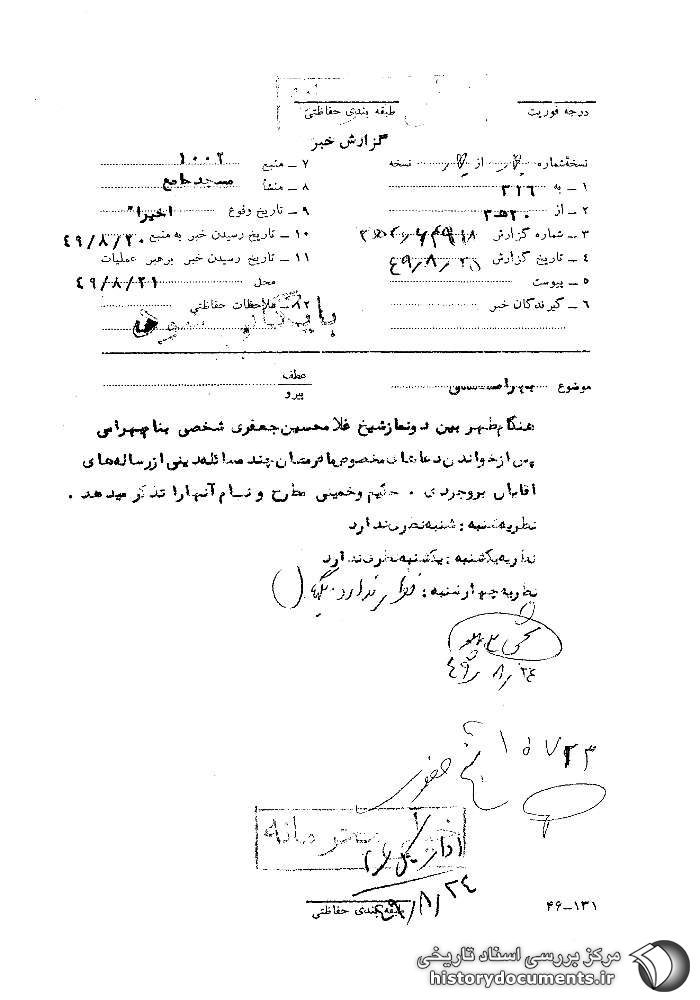 درجه فوریت
طبقه بندی حفاظتی
گزارش خبر
نسخه شماره یک از یک نسخه
۱ ــ به ۳۱۶
۲ ــ از
۳ ــ شماره گزارش
۴ ــ تاریخ گزارش ۴۹/۸/۲۵
۵ ــ پیوست
۶ ــ گیرندگان خبر
۷ ــ منبع ۱۰۰۲
۸ ــ منشأ مسجد جامع
۹ ــ تاریخ وقوع اخیرا"
۱۰ ــ تاریخ رسیدن خبر به منبع ۴۹/۸/۲۰
۱۱ ــ تاریخ رسیدن خبر برهبر عملیات
محل ۴۹/۸/۲۱
ملاحظات حفاظتی
موضوع
عطف
پیرو
هنگام ظهر بین دو نماز شیخ غلامحسین جعفری شخصی بنام بهرامی
پس از خواندن دعاهای مخصوص ماه رمضان چند مسائله دینی از رساله های
آقایان بروجردی . حکیم وخمینی مطرح و تمام آنها را تذکر میدهد .
نظریه شنبه : شنبه نظری ندارد
نظریه یکشنبه : یکشنبه نظری ندارد
نظریه چهارشنبه : نظری ندارد
۴۹/۸/۲۴
۱۵۷۲۳
شیخ جعفری
۴۹/۸/۲۴
طبقه بندی حفاظتی
۴۶-۱۳۱
مرکز بررسی اسناد تاریخی
historydocuments.ir